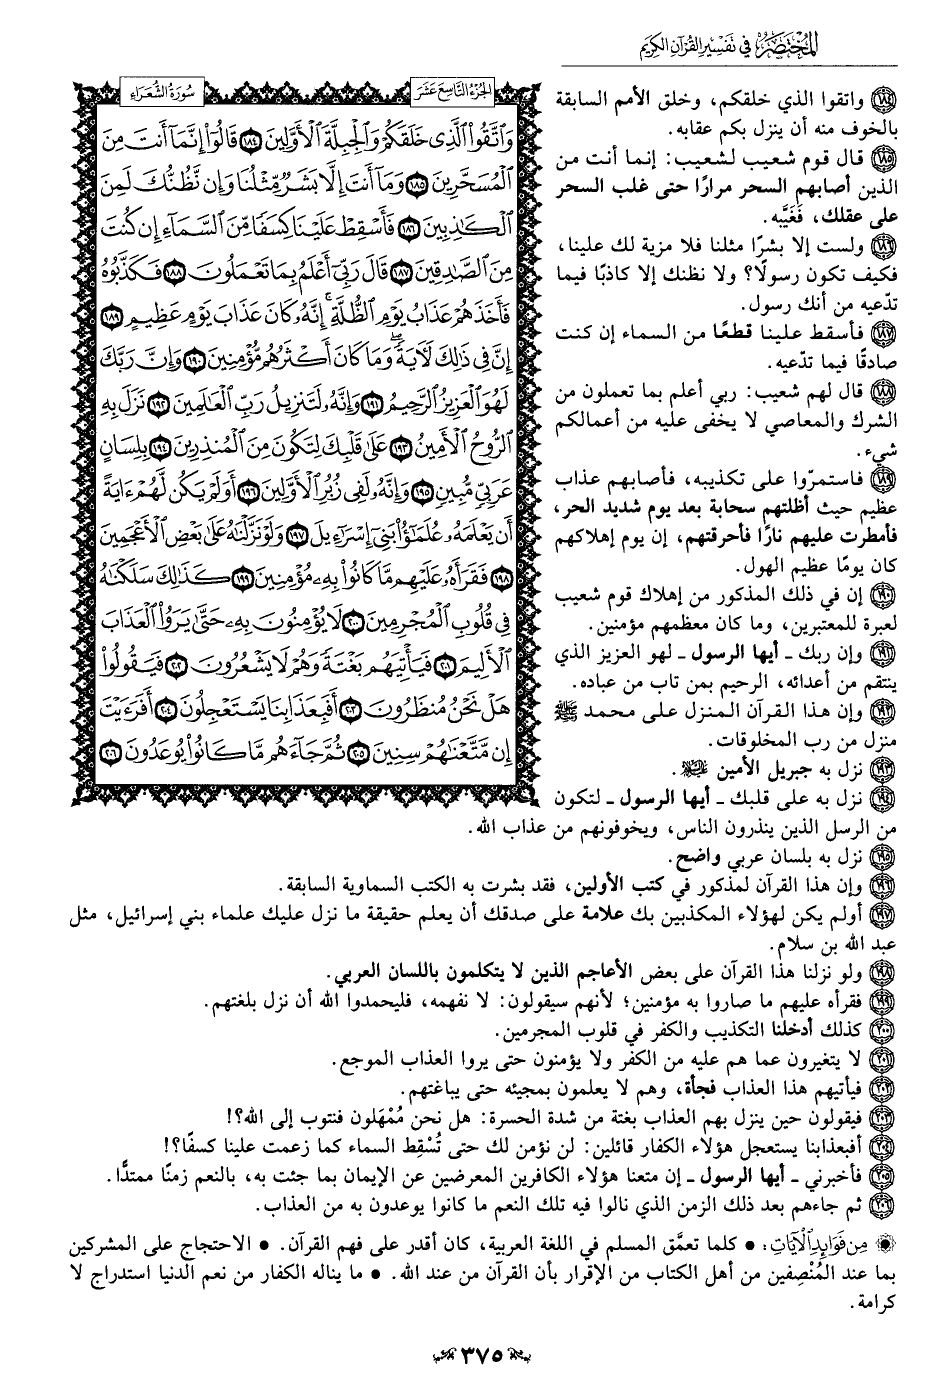 المختصر في تفسير القرآن الكريم
الجزء التاسع عشر
سورة الشعراء
وَٱتَّقُوا۟ ٱلَّذِى خَلَقَكُمْ وَٱلْجِبِلَّةَ ٱلْأَوَّلِينَ ١٨٤ قَالُوٓا۟ إِنَّمَآ أَنتَ مِنَ
ٱلْمُسَحَّرِينَ ١٨٥ وَمَآ أَنتَ إِلَّا بَشَرٌ مِّثْلُنَا وَإِن نَّظُنُّكَ لَمِنَ
ٱلْكَٰذِبِينَ ١٨٦ فَأَسْقِطْ عَلَيْنَا كِسَفًا مِّنَ ٱلسَّمَآءِ إِن كُنتَ
مِنَ ٱلصَّٰدِقِينَ ١٨٧ قَالَ رَبِّىٓ أَعْلَمُ بِمَا تَعْمَلُونَ ١٨٨ فَكَذَّبُوهُ
فَأَخَذَهُمْ عَذَابُ يَوْمِ ٱلظُّلَّةِ ۚ إِنَّهُۥ كَانَ عَذَابَ يَوْمٍ عَظِيمٍ ١٨٩
إِنَّ فِى ذَٰلِكَ لَءَايَةً ۖ وَمَا كَانَ أَكْثَرُهُم مُّؤْمِنِينَ ١٩٠ وَإِنَّ رَبَّكَ
لَهُوَ ٱلْعَزِيزُ ٱلرَّحِيمُ ١٩١ وَإِنَّهُۥ لَتَنزِيلُ رَبِّ ٱلْعَٰلَمِينَ ١٩٢ نَزَلَ بِهِ
ٱلرُّوحُ ٱلْأَمِينُ ١٩٣ عَلَىٰ قَلْبِكَ لِتَكُونَ مِنَ ٱلْمُنذِرِينَ ١٩٤ بِلِسَانٍ
عَرَبِىٍّ مُّبِينٍ ١٩٥ وَإِنَّهُۥ لَفِى زُبُرِ ٱلْأَوَّلِينَ ١٩٦ أَوَلَمْ يَكُن لَّهُمْ ءَايَةً
أَن يَعْلَمَهُۥ عُلَمَٰٓؤُا۟ بَنِىٓ إِسْرَٰٓءِيلَ ١٩٧ وَلَوْ نَزَّلْنَٰهُ عَلَىٰ بَعْضِ ٱلْأَعْجَمِينَ
١٩٨ فَقَرَأَهُۥ عَلَيْهِم مَّا كَانُوا۟ بِهِۦ مُؤْمِنِينَ ١٩٩ كَذَٰلِكَ سَلَكْنَٰهُ
فِى قُلُوبِ ٱلْمُجْرِمِينَ ٢٠٠ لَا يُؤْمِنُونَ بِهِۦ حَتَّىٰ يَرَوُا۟ ٱلْعَذَابَ
ٱلْأَلِيمَ ٢٠١ فَيَأْتِيَهُم بَغْتَةً وَهُمْ لَا يَشْعُرُونَ ٢٠٢ فَيَقُولُوا۟
هَلْ نَحْنُ مُنظَرُونَ ٢٠٣ أَفَبِعَذَابِنَا يَسْتَعْجِلُونَ ٢٠٤ أَفَرَءَيْتَ
إِن مَّتَّعْنَٰهُمْ سِنِينَ ٢٠٥ ثُمَّ جَآءَهُم مَّا كَانُوا۟ يُوعَدُونَ ٢٠٦
١٨٤ واتقوا الذي خلقكم، وخلق الأمم السابقة
بالخوف منه أن ينزل بكم عقابه.
١٨٥ قال قوم شعيب لشعيب: إنما أنت من
الذين أصابهم السحر مرارًا حتى غلب السحر
على عقلك، فَغَيَّبه.
١٨٦ ولست إلا بشرًا مثلنا فلا مزية لك علينا،
فكيف تكون رسولًا؟ ولا نظنك إلا كاذبًا فيما
تدّعيه من أنك رسول.
١٨٧ فأسقط علينا قطعًا من السماء إن كنت
صادقًا فيما تدّعيه.
١٨٨ قال لهم شعيب: ربي أعلم بما تعملون من
الشرك والمعاصي لا يخفى عليه من أعمالكم
شيء.
١٨٩ فاستمرّوا على تكذيبه، فأصابهم عذاب
عظيم حيث أظلتهم سحابة بعد يوم شديد الحر،
فأمطرت عليهم نارًا فأحرقتهم، إن يوم إهلاكهم
كان يومًا عظيم الهول.
١٩٠ إن في ذلك المذكور من إهلاك قوم شعيب
لعبرة للمعتبرين، وما كان معظمهم مؤمنين.
١٩١ وإن ربك ـ أيها الرسول ـ لهو العزيز الذي
ينتقم من أعدائه، الرحيم بمن تاب من عباده.
١٩٢ وإن هذا القرآن المنزل على محمد ﷺ
منزل من رب المخلوقات.
١٩٣ نزل به جبريل الأمين عليه السلام.
١٩٤ نزل به على قلبك ـ أيها الرسول ـ لتكون
من الرسل الذين ينذرون الناس، ويخوفونهم من عذاب الله.
١٩٥ نزل به بلسان عربي واضح.
١٩٦ وإن هذا القرآن لمذكور في كتب الأولين، فقد بشرت به الكتب السماوية السابقة.
١٩٧ أولم يكن لهؤلاء المكذبين بك علامة على صدقك أن يعلم حقيقة ما نزل عليك علماء بني إسرائيل، مثل
عبد الله بن سلام.
١٩٨ ولو نزلنا هذا القرآن على بعض الأعاجم الذين لا يتكلمون باللسان العربي.
١٩٩ فقرأه عليهم ما صاروا به مؤمنين؛ لأنهم سيقولون: لا نفهمه، فليحمدوا الله أن نزل بلغتهم.
٢٠٠ كذلك أدخلنا التكذيب والكفر في قلوب المجرمين.
٢٠١ لا يتغيرون عما هم عليه من الكفر ولا يؤمنون حتى يروا العذاب الموجع.
٢٠٢ فيأتيهم هذا العذاب فجأة، وهم لا يعلمون بمجيئه حتى يباغتهم.
٢٠٣ فيقولون حين ينزل بهم العذاب بغتة من شدة الحسرة: هل نحن مُمْهَلون فنتوب إلى الله؟!
٢٠٤ أفبعذابنا يستعجل هؤلاء الكفار قائلين: لن نؤمن لك حتى تُسْقِط السماء كما زعمت علينا كسفًا؟!
٢٠٥ فأخبرني ـ أيها الرسول ـ إن متعنا هؤلاء الكافرين المعرضين عن الإيمان بما جئت به، بالنعم زمنًا ممتدًّا.
٢٠٦ ثم جاءهم بعد ذلك الزمن الذي نالوا فيه تلك النعم ما كانوا يوعدون به من العذاب.
من فوائد الآيات: • كلما تعمَّق المسلم في اللغة العربية، كان أقدر على فهم القرآن. • الاحتجاج على المشركين
بما عند المُنْصِفين من أهل الكتاب من الإقرار بأن القرآن من عند الله. • ما يناله الكفار من نعم الدنيا استدراج لا
كرامة.
٣٧٥